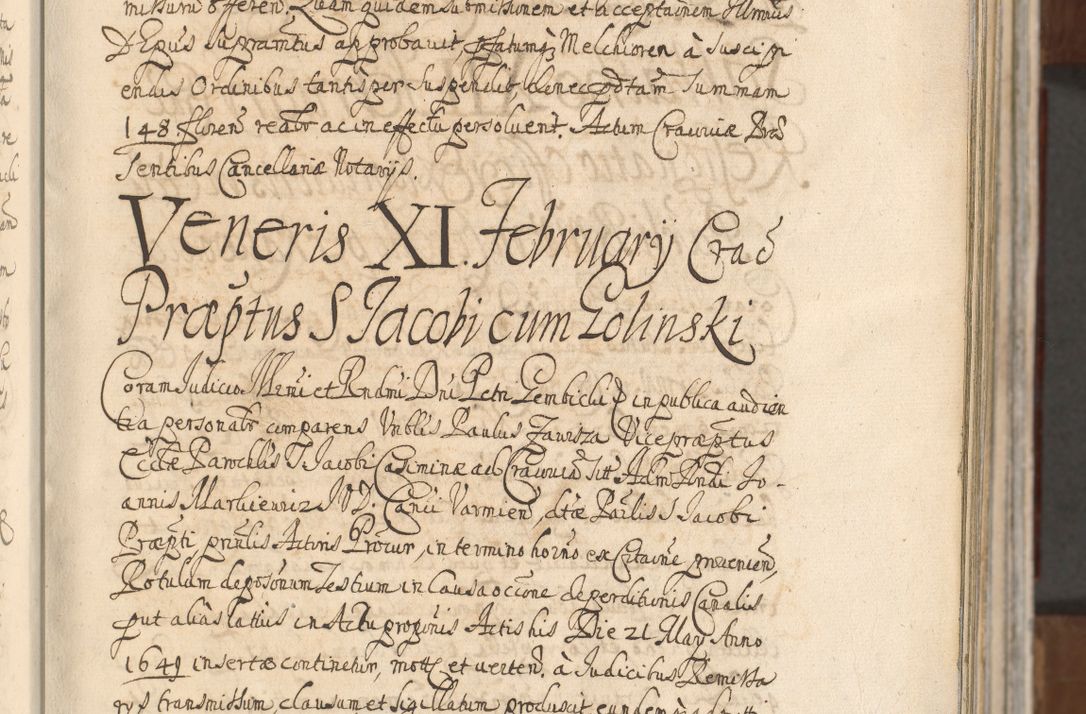 missuru offeren. Quam quidem submissionem et acceptaõnem Illmus
D Epũs supramtus approbavit, pfatumq3 Melchioren à suscipi
endis Ordinibus tantisper suspendit, donec pdtam Summam
148 floren realr ac in effectu persoluent. Actum Cracoviæ Præ
sentibus Cancellariæ Notarijs.
Veneris XI. February Crac
Præptus S Jacobi cum Golinski
Coram Judicio Illmi et Rndmi Dni Petri Gembicki Ep in publica audien
tia personalr comparens Vnblis Paulus Zawisza Vicepræptus
Ecclæ Parochlis S. Jacobi Casimiriæ ad Cracoviã sitt Adm Rndi Jo-
annis Markiewiz IVD. Canci Varmien, dtæ Pochlis S Jacobi
Præpti prinlis Actoris Procur, in termino horno ex Citaõne provenien,
Rotulum deposõnum Testium in Causa occõne deperditionis Canalis
put alias latius in Actu propõnis Actis his Die 21 May Anno
1649 insertæ continetur, mott et verten. à Judicibus Remissa
rys transmissum, clausum et sigillatum produxit eundem